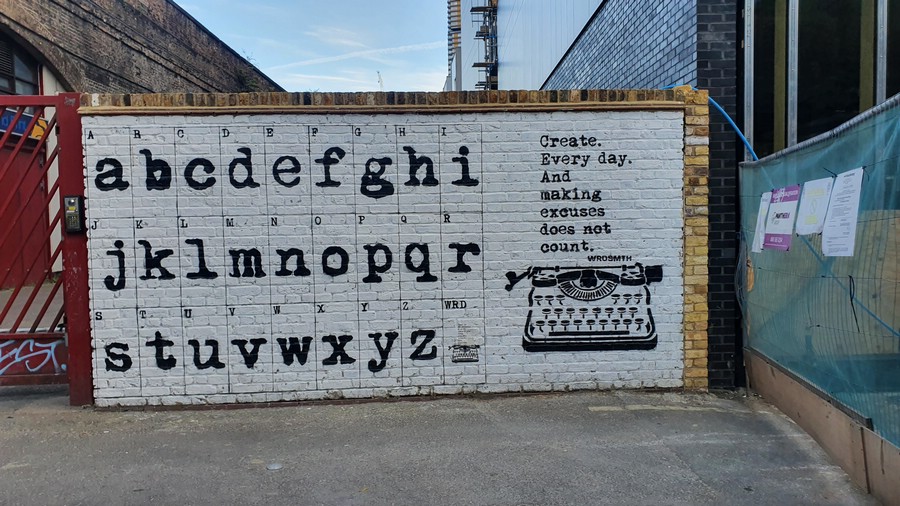 A B C D E F G H I
a b c d e f g h i
J K L M N O P Q R
j k l m n o p q r
S T U V W X Y Z WRD
s t u v w x y z
Create.
Every day.
And
making
excuses
does not
count.
WRDSMTH